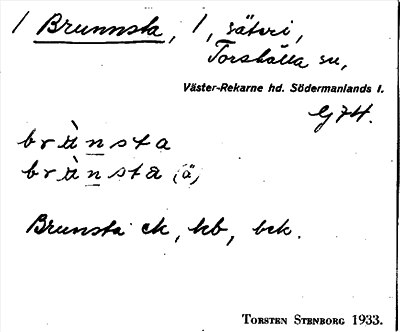 1 Brunnsta, 1, säteri,
Torshälla sn,
Väster-Rekarne hd. Södermanlands l.
G 7 H.
brùnsta
brùnsta (ä)
Brunsta ek, kb, bek.
TORSTEN STENBORG 1933.